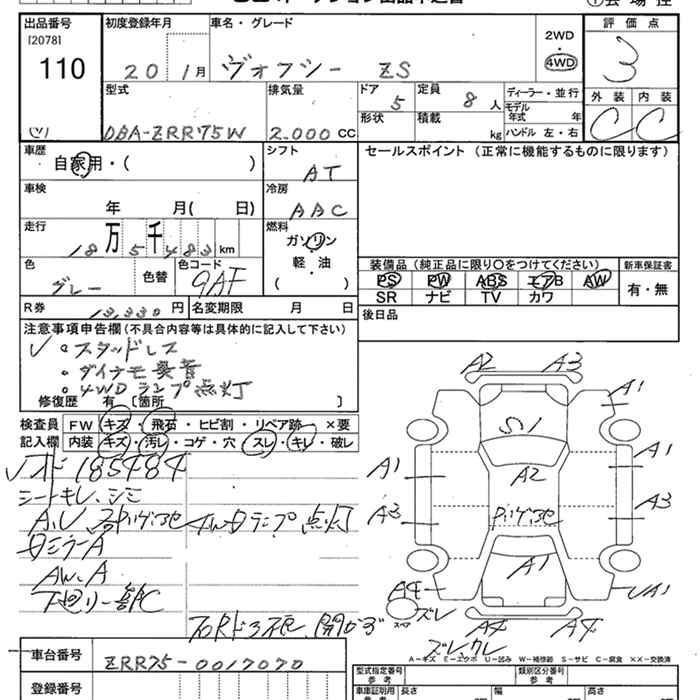 出品番号
[2078]
110
初度登録年月
20 1月
車名・グレード
ヴォクシー ZS
2WD
・
4WD
評価点
3
外装 内装
C C
型式
DBA-ZRR75W
排気量
2.000 CC
ドア
5
定員
8 人
形状
積載
kg
ディーラー・並行
モデル年式 年
ハンドル 左・右
車歴
自家用・( )
シフト
AT
セールスポイント (正常に機能するものに限ります)
車検
年 月( 日)
冷房
AAC
走行
18万5千483km
燃料
ガソリン
・
軽・油
( )
色
グレー
色替
色コード
9AF
装備品 (純正品に限り○をつけてください)
PS PW ABS エアB AW
SR ナビ TV カワ
新車保証書
有・無
R券
13,330円
名変期限 月 日
後日品
注意事項申告欄(不具合内容等は具体的に記入して下さい)
✓ 。スタッドレス
。ダイナモ異音
。4WDランプ点灯
修復歴 有 〔箇所 〕
検査員記入欄
FW キズ・飛石・ヒビ割・リペア跡 ×要
内装 キズ・汚レ・コゲ・穴 スレ・キレ・破レ
185484
シートキレ、シミ
4WDランプ点灯
ミラーA
AW、A
下廻り一部C
開かず
A2 A3
A1
S1
A1
A2
A1
A3
A3
A1
UA1
A4
スペア
ズレ
A4 A4
ズレ,クレ
A-キズ E-エクボ U-凹み W-補修跡 S-サビ C-腐食 ××-交換済
車台番号
ZRR75-0017070
登録番号
型式指定番号
参考
類別区分番号
参考
車庫証明用
参考
長さ
幅
高さ